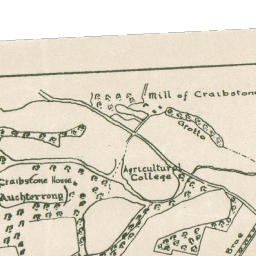 Mill of Craibstone
Grotto
Agricultural
College
Craibstone House
(Auchterrony)
Brae